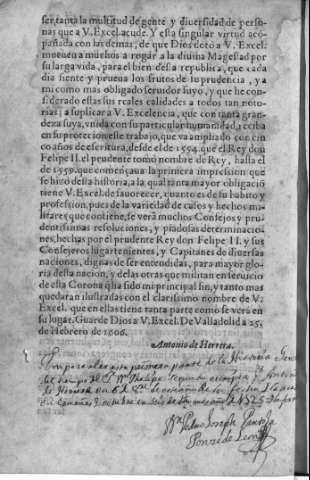 ser, tanta la multitud de gente y diuersidad de perso-
nas que a V. Excel. acude. Y esta singular virtud acō-
pañada con las demas, de que Dios dotò a V. Excel.
mouera a muchos a rogar a la diuina Magestad por
su larga vida, para el bien desta republica, que cada
dia siente y prueua los frutos de su prudencia, y a
mi como mas obligado seruidor suyo, y que he con-
siderado estas sus reales calidades a todos tan noto-
rias; a suplicar a V. Excelencia, que con tanta gran-
deza suya, vnida con su particular humanidad, reciba
en su proteccion este trabajo, que va ampliado con cin-
co años de escritura, desde el de 1554. que el Rey don
Felipe II. el prudente tomò nombre de Rey, hasta el
de 1559. que començaua la primera impression que
se hizo desta historia, a la qual tanta mayor obligació
tiene V. Excel. de fauorecer, quanto es de su habito y
profession, pues de la variedad de casos y hechos mi-
litares que contiene, se verà muchos Consejos y pru-
dentissimas resoluciones, y piadosas determinacio-
nes, hechas por el prudente Rey don Felipe II. y sus
Consejeros lugartenientes, y Capitanes de diuersas
naciones, dignas de ser entendidas, para mayor glo-
ria desta nacion, y de las otras que militan en seruicio
de esta Corona q̃ ha sido mi principal fin, y tanto mas
quedaràn ilustradas con el clarissimo nombre de V.
Excel. que en ellas tiene tanta parte como se verà en
su lugar. Guarde Dios a V. Excel. De Valladolid a 25.
de Hebrero de 1606.
Antonio de Herrera.
primera parte de la Historia
del tiempo Phelipe segundo Antonio
de
de
Pedro Joseph
Ponze de Leon